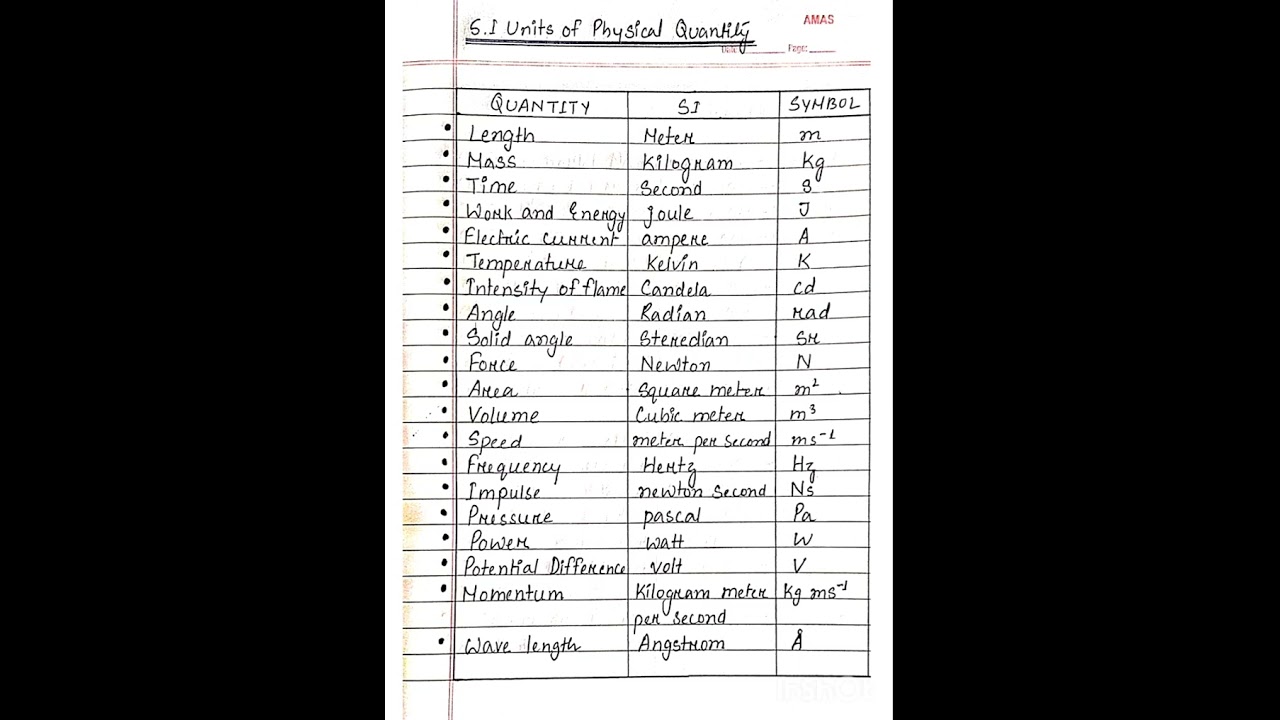 AMAS
S.I Units of Physical Quantity
Date: Page:
QUANTITY SI SYMBOL
Length Meter m
Mass Kilogram Kg
Time Second s
Work and Energy joule J
Electric current ampere A
Temperature Kelvin K
Intensity of flame Candela cd
Angle Radian rad
Solid angle Steredian Sr
Force Newton N
Area Square meter m²
Volume Cubic meter m³
Speed meter per second ms⁻¹
Frequency Hertz Hz
Impulse newton second Ns
Pressure pascal Pa
Power watt W
Potential Difference volt V
Momentum Kilogram meter Kg ms⁻¹
per second
Wave length Angstrom Å